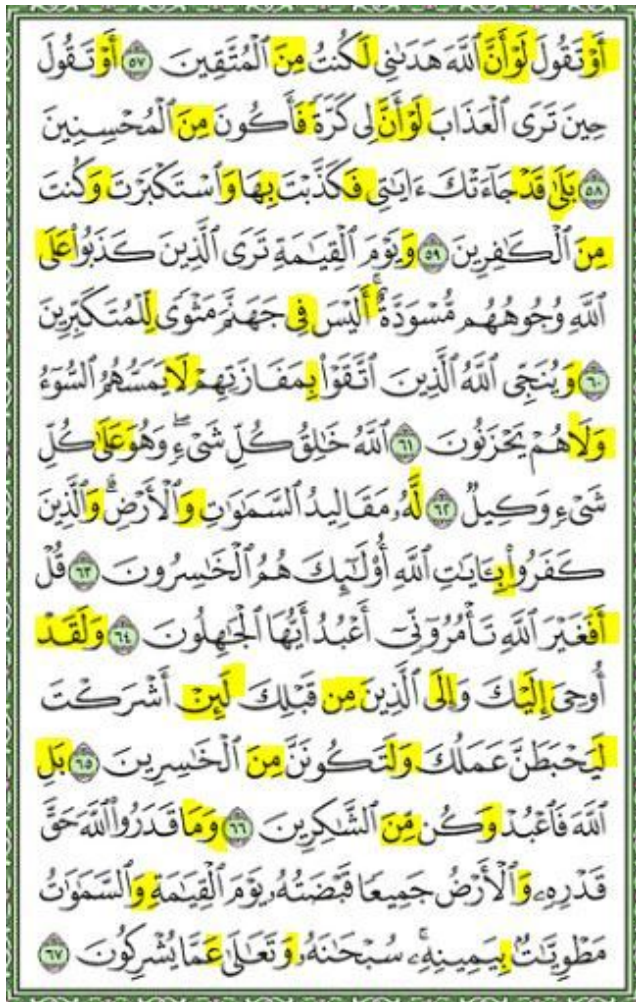 أَوْ تَقُولَ لَوْ أَنَّ ٱللَّهَ هَدَىٰنِى لَكُنتُ مِنَ ٱلْمُتَّقِينَ ٥٧ أَوْ تَقُولَ
حِينَ تَرَى ٱلْعَذَابَ لَوْ أَنَّ لِى كَرَّةً فَأَكُونَ مِنَ ٱلْمُحْسِنِينَ
٥٨ بَلَىٰ قَدْ جَآءَتْكَ ءَايَـٰتِى فَكَذَّبْتَ بِهَا وَٱسْتَكْبَرْتَ وَكُنتَ
مِنَ ٱلْكَـٰفِرِينَ ٥٩ وَيَوْمَ ٱلْقِيَـٰمَةِ تَرَى ٱلَّذِينَ كَذَبُوا۟ عَلَى
ٱللَّهِ وُجُوهُهُم مُّسْوَدَّةٌ ۚ أَلَيْسَ فِى جَهَنَّمَ مَثْوًى لِّلْمُتَكَبِّرِينَ
٦٠ وَيُنَجِّى ٱللَّهُ ٱلَّذِينَ ٱتَّقَوْا۟ بِمَفَازَتِهِمْ لَا يَمَسُّهُمُ ٱلسُّوٓءُ
وَلَا هُمْ يَحْزَنُونَ ٦١ ٱللَّهُ خَـٰلِقُ كُلِّ شَىْءٍ ۖ وَهُوَ عَلَىٰ كُلِّ
شَىْءٍ وَكِيلٌ ٦٢ لَّهُۥ مَقَالِيدُ ٱلسَّمَـٰوَٰتِ وَٱلْأَرْضِ ۗ وَٱلَّذِينَ
كَفَرُوا۟ بِـَٔايَـٰتِ ٱللَّهِ أُو۟لَـٰٓئِكَ هُمُ ٱلْخَـٰسِرُونَ ٦٣ قُلْ
أَفَغَيْرَ ٱللَّهِ تَأْمُرُوٓنِّىٓ أَعْبُدُ أَيُّهَا ٱلْجَـٰهِلُونَ ٦٤ وَلَقَدْ
أُوحِىَ إِلَيْكَ وَإِلَى ٱلَّذِينَ مِن قَبْلِكَ لَئِنْ أَشْرَكْتَ
لَيَحْبَطَنَّ عَمَلُكَ وَلَتَكُونَنَّ مِنَ ٱلْخَـٰسِرِينَ ٦٥ بَلِ
ٱللَّهَ فَٱعْبُدْ وَكُن مِّنَ ٱلشَّـٰكِرِينَ ٦٦ وَمَا قَدَرُوا۟ ٱللَّهَ حَقَّ
قَدْرِهِۦ وَٱلْأَرْضُ جَمِيعًا قَبْضَتُهُۥ يَوْمَ ٱلْقِيَـٰمَةِ وَٱلسَّمَـٰوَٰتُ
مَطْوِيَّـٰتٌۢ بِيَمِينِهِۦ ۚ سُبْحَـٰنَهُۥ وَتَعَـٰلَىٰ عَمَّا يُشْرِكُونَ ٦٧